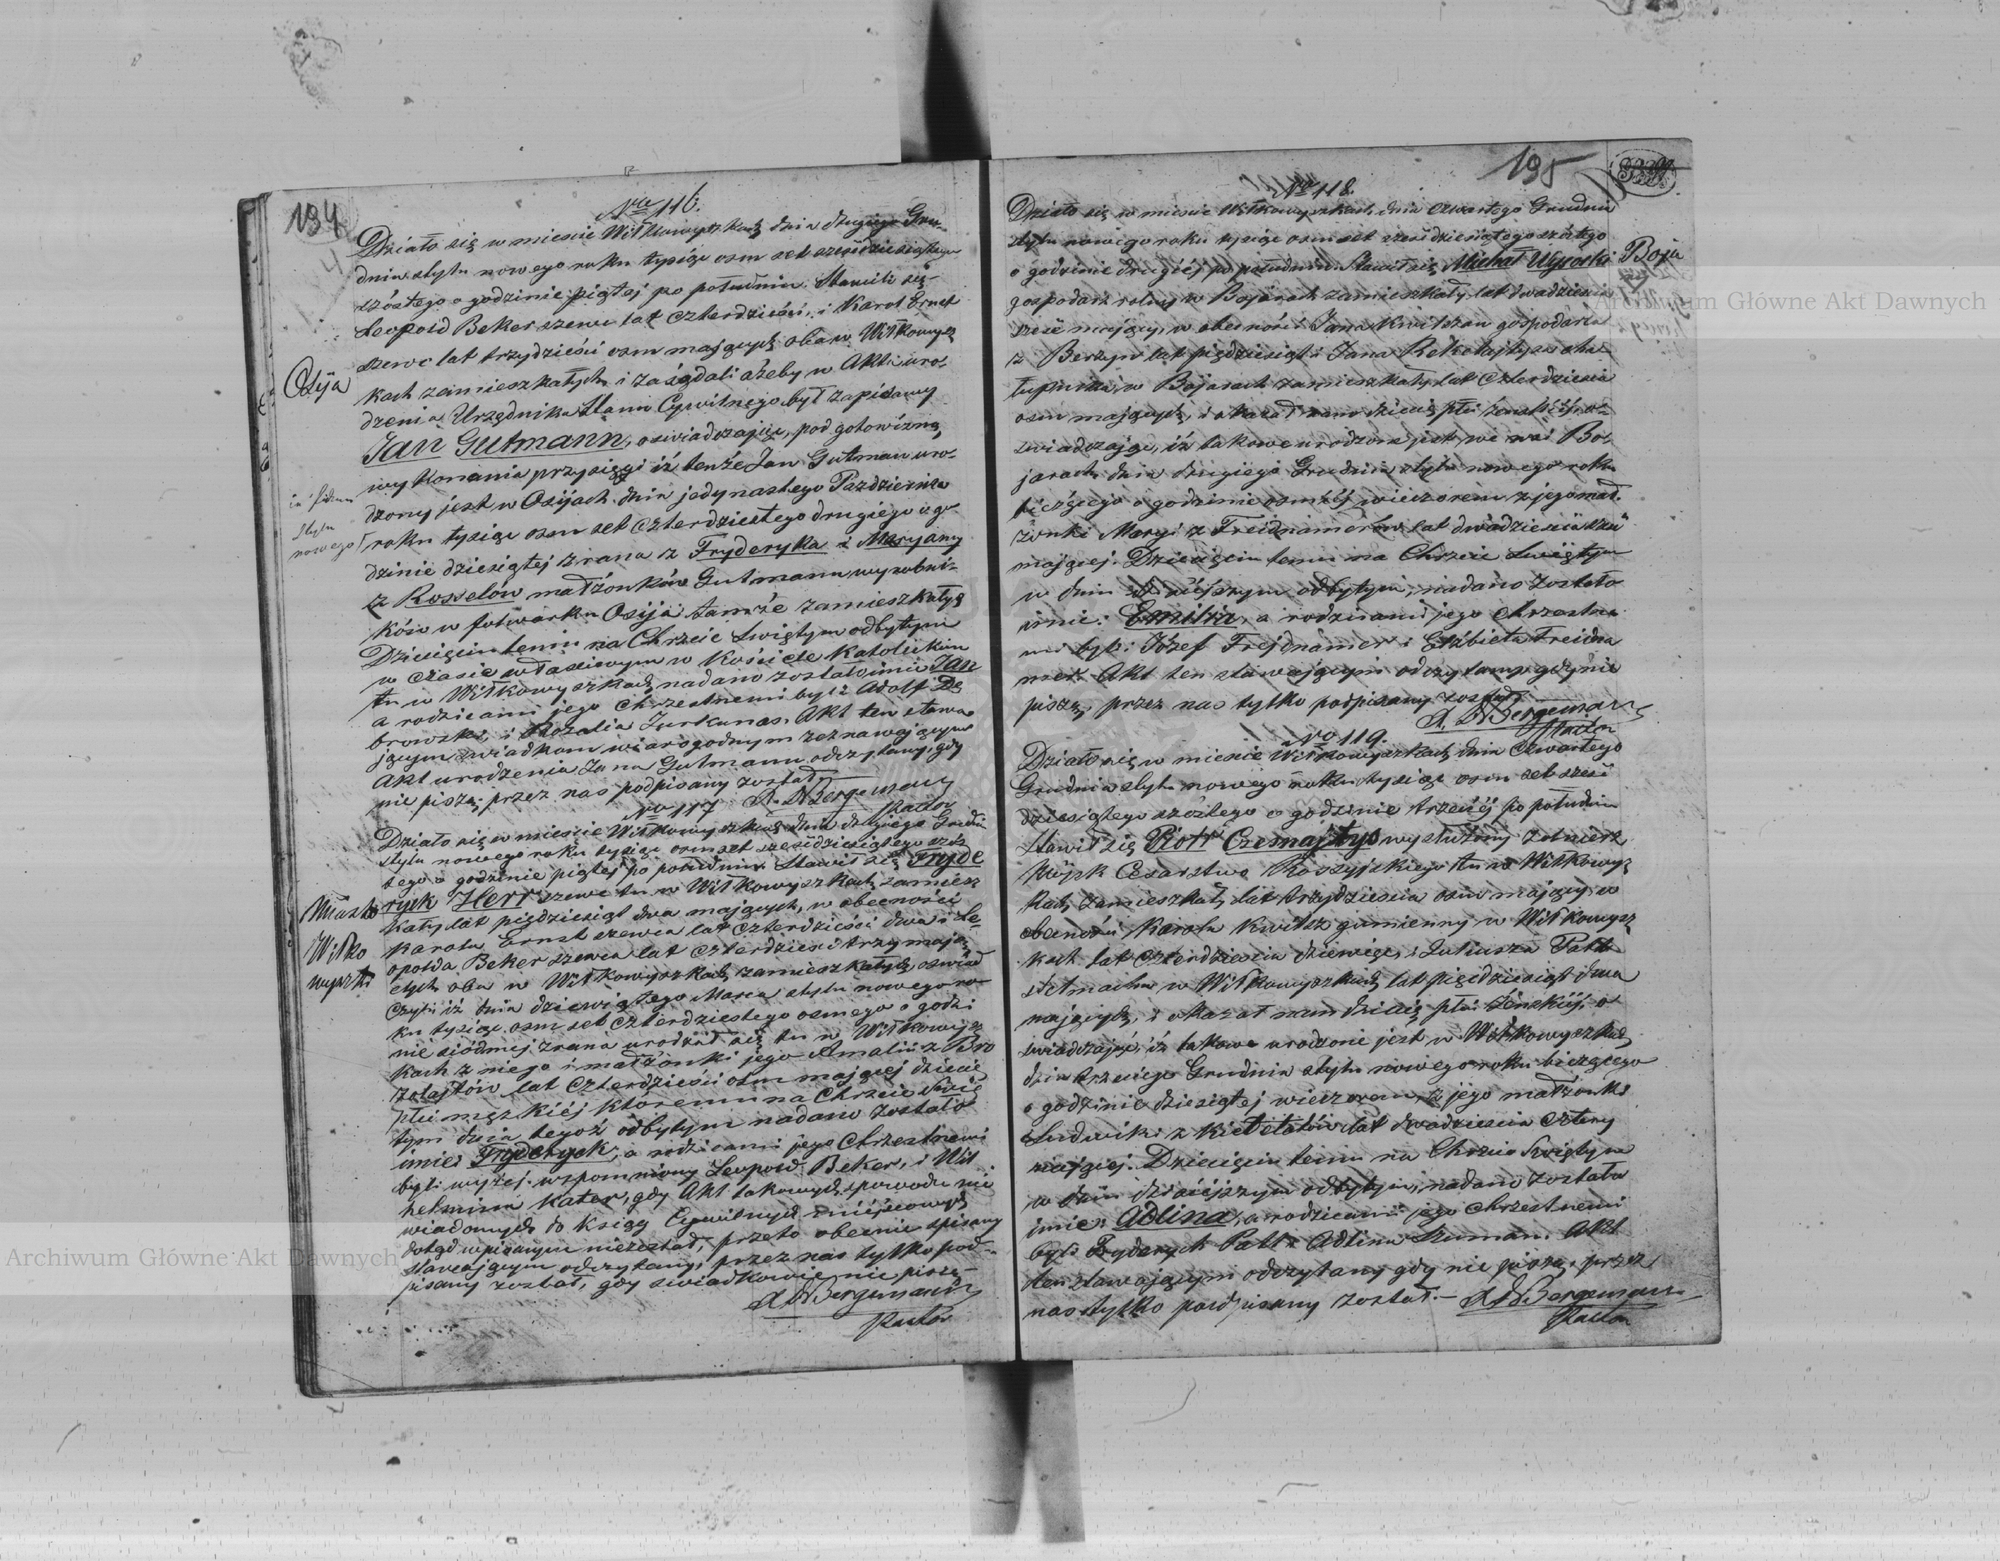 134
Nro 116.
Działo się w mieście Wiłkowyszkach dnia drugiego Gru-
dnia stylu nowego roku tysiąc osm set sześćdziesiątego
szóstego o godzinie piątej po południu. Stawili się
Leopold Beker szewc lat czterdzieści, i Karol Ernst
szewc lat trzydzieści osm mających obaw Wiłkowysz
kach zamieszkałych i zażądali ażeby w Akta uro-
dzenia Urzędnika Stanu Cywilnego był zapisany
Jan Gutmann, oświadczając, pod gotowizną
wykonania przysięgi iż tenże Jan Gutman uro-
dzony jest w Osijach dnia jedynastego Października
roku tysiąc osm set czterdziestego drugiego o go-
dzinie dziesiątej z rana z Fryderyka i Maryany
z Rosselów małżonków Gutmann wyrobni-
ków w folwarku Osija tamże zamieszkałych
Dziecięciu temu na Chrzcie Świętym odbytym
w czasie właściwym w Kościele Katolickim
tu w Wiłkowyszkach nadano zostało imie Jan
a rodzicami jego chrzestnemi byli Adolf Dą
browski i Rozalia Jurkunas. Akt ten stawa-
jącym świadkom wiarogodnym zeznawającym
Akt urodzenia Jana Gutmann odczytany, gdy
nie piszą, przez nas podpisany został.
A. W Bergemann
Pastor
Osija
stylu
nowego
No 117
Działo się w mieście Wiłkowyszkach dnia drugiego Grudnia
stylu nowego roku tysiąc osm set sześćdziesiątego szós
tego o godzinie piątej po południu. Stawił się Fryde
ryck Hert szewc tu w Wiłkowyszkach zamiesz
kały lat pięćdziesiąt dwa mających, w obecności
Karola Ernst szewca lat czterdzieści dwa i Le-
opolda Beker szewca lat czterdzieści trzy mają-
cych oba w Wiłkowyszkach zamieszkałych oświad
czył iż dnia dziewiątego Marca stylu nowego ro-
ku tysiąc osm set czterdziestego osmego o godzi
nie siódmej zrana urodził się tu w Wiłkowysz
kach z niego i małżonki jego Amalii z Bro
zołajtów lat czterdzieści osm mającej dziecię
płci męzkiéj któremu na Chrzcie Świę
tym dnia tegoż odbytym nadano zostało
imie: Fryderyck, a rodzicami jego Chrzestnemi
byli wyżej wspomniony Leopold Beker, i Wil
helmina Kater, gdy Akt takowych z powodu nie
wiadomych do Ksiąg Cywilnych miejscowych
dotąd wpisanym niezostał, przeto obecnie spisany
stawającym odczytany, przez nas tylko pod-
pisany został, gdy świadkowie nie piszą.
A. W Bergemann
Pastor
Miasto
Wiłko
wyszki
195
No 118.
Działo się w mieście Wiłkowyszkach dnia czwartego Grudnia
stylu nowego roku tysiąc osm set sześćdziesiątego szóstego
o godzinie drugiéj po południu. Stawił się Michał Wysocki
gospodarz rolny w Bojarach zamieszkały lat dwadzieścia
sześć mający, w obecności Jana Kwitszau gospodarza
z Berzyn lat pięćdziesiąt i Jana Rekełajtysa cha-
łupnika, w Bojarach zamieszkały lat czterdzieścia
osm mających, i okazał nam dziecię płci żeńskiej, o-
świadczając, iż takowe urodzone jest we wsi Bo-
jarach dnia drugiego Grudnia stylu nowego roku
bieżącego o godzinie osméj wieczorem z jego mał-
żonki Maryi z Freidnamerów lat dwadzieścia sześć
mającej. Dziecięciu temu na Chrzcie Świętym
w dniu dzisiéjszym odbytym, nadano zostało
imie: Emilia, a rodzicami jego chrzestne
mi byli: Józef Frejdnamer i Elżbieta Freidna
mer. Akt ten stawającym odczytany gdy nie
piszą, przez nas tylko podpisany został
A. W Bergemann
Pastor
Boja
No 119.
Działo się w mieście Wiłkowyszkach dnia czwartego
Grudnia stylu nowego roku tysiąc osm set sześć
dziesiątego szóstego o godzinie trzeciéj po południu
Stawił się Piotr Czemajtys wysłużony żołnierz
Wójsk Cesarstwa Rossyjskiego tu w Wiłkowysz
kach zamieszkały lat trzydzieścia osm mający, w
obecności Karola Kwitsz gumienny w Wiłkowysz
kach lat czterdzieścia dziewięć, i Juliusza Patt
stelmacha w Wiłkowyszkach lat pięćdziesiąt dwa
mających, i okazał nam dziecię płci żeńskiéj, o-
świadczając, iż takowe urodzone jest w Wiłkowyszkach
dnia trzeciego Grudnia stylu nowego roku bieżącego
o godzinie dziesiątej wieczorem, z jego małżonki
Ludwiki z Kietelatów lat dwadzieścia cztery
mającej. Dziecięciu temu na Chrzcie Świętym
w dniu dzisiéjszym odbytym, nadano zostało
imie: Adlina, a rodzicami jego chrzestnemi
byli Fryderych Patt i Adlina Szuman. Akt
ten stawającym odczytany gdy nie piszą, przez
nas tylko podpisany został.
A. W. Bergemann
Pastor
Archiwum Główne Akt Dawnych
Archiwum Główne Akt Dawnych